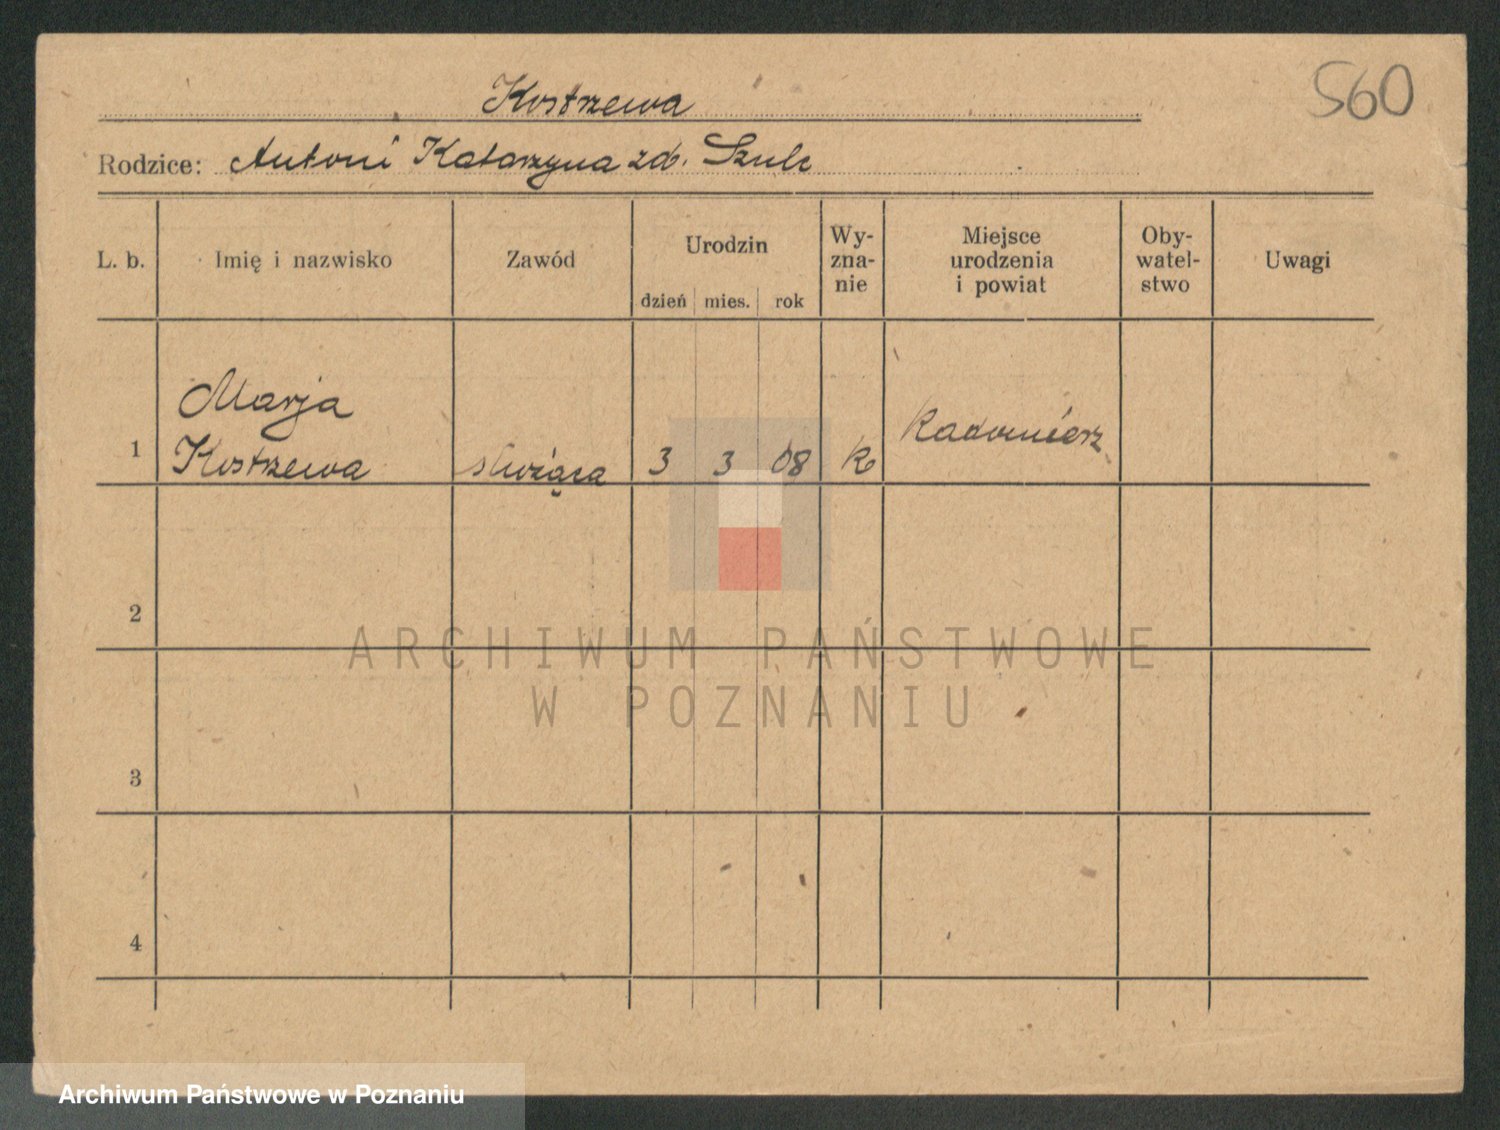 560
Kostrzewa
Rodzice: Antoni Katarzyna zd. Szulc
L. b. Imię i nazwisko Zawód Urodzin dzień mies. rok Wy-zna-nie Miejsce urodzenia i powiat Oby-watel-stwo Uwagi
Marja
1 Kostrzewa służąca 3 3 08 K Radomierz
2
ARCHIWUM PAŃSTWOWE
W POZNANIU
3
4
Archiwum Państwowe w Poznaniu